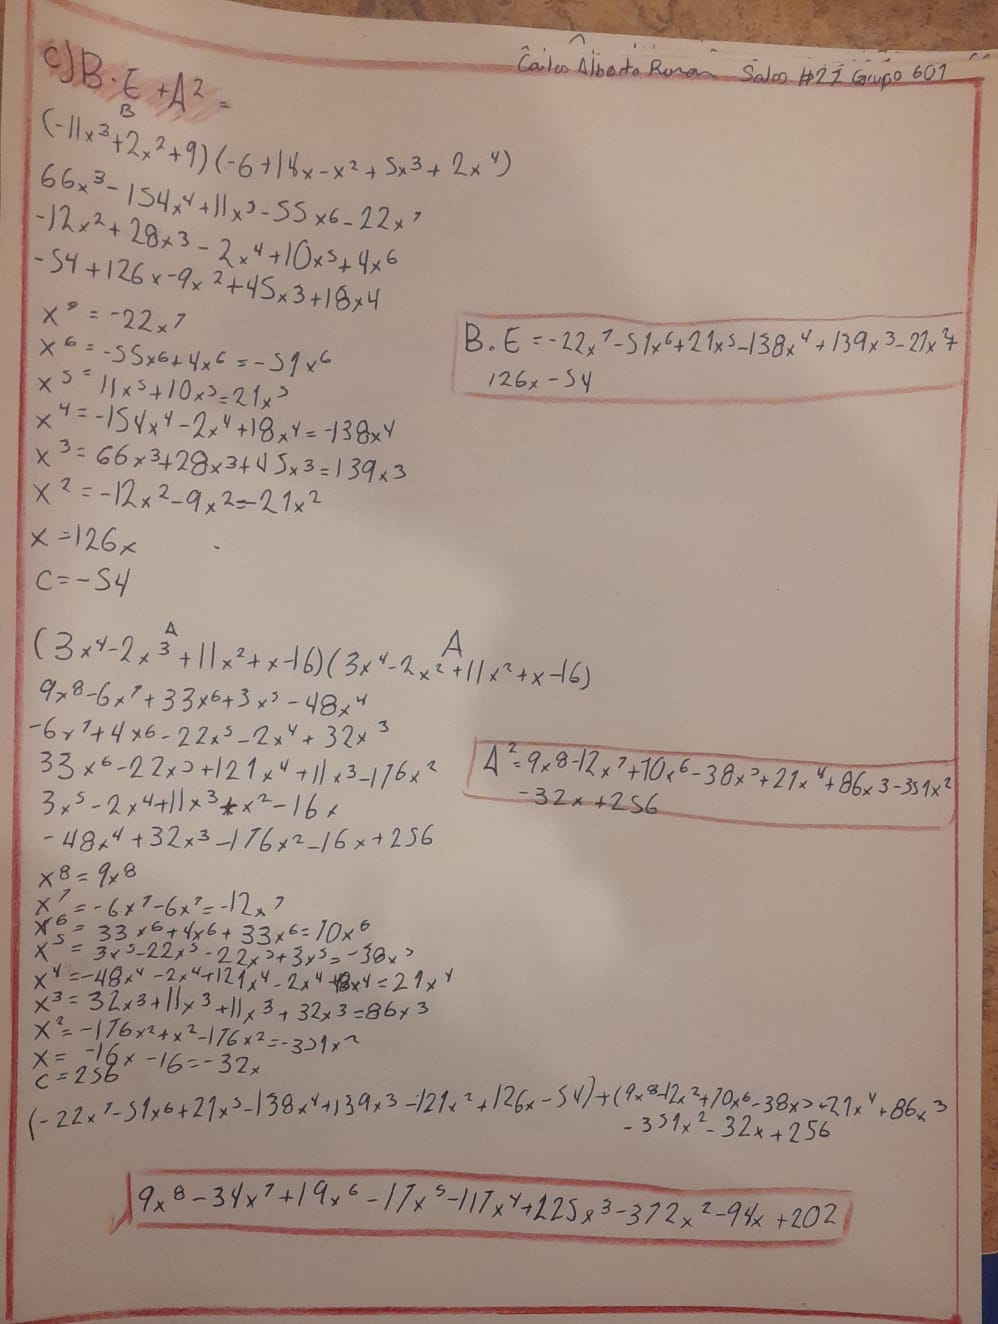 Carlos Alberto Roman Salas #21 Grupo 601
c) B · E + A² =
B
(-11x³+2x²+9)(-6+14x-x²+5x³+2x⁴)
66x³-154x⁴+11x⁵-55x⁶-22x⁷
-12x²+28x³-2x⁴+10x⁵+4x⁶
-54+126x-9x²+45x³+18x⁴
x⁷ = -22x⁷
x⁶ = -55x⁶+4x⁶ = -51x⁶
x⁵ = 11x⁵+10x⁵=21x⁵
x⁴ = -154x⁴-2x⁴+18x⁴=-138x⁴
x³ = 66x³+28x³+45x³=139x³
x² = -12x²-9x²=-21x²
x =126x
C=-54
B. E = -22x⁷-51x⁶+21x⁵-138x⁴+139x³-21x²+
126x-54
A A
(3x⁴-2x³+11x²+x-16)(3x⁴-2x²+11x²+x-16)
9x⁸-6x⁷+33x⁶+3x⁵-48x⁴
-6x⁷+4x⁶-22x⁵-2x⁴+32x³
33x⁶-22x⁵+121x⁴+11x³-176x²
3x⁵-2x⁴+11x³+x²-16x
-48x⁴+32x³-176x²-16x+256
A²=9x⁸-12x⁷+70x⁶-38x⁵+21x⁴+86x³-351x²
-32x+256
x⁸ = 9x⁸
x⁷ = -6x⁷-6x⁷=-12x⁷
x⁶ = 33x⁶+4x⁶+33x⁶=70x⁶
x⁵ = 3x⁵-22x⁵-22x⁵+3x⁵=-38x⁵
x⁴ =-48x⁴-2x⁴+121x⁴-2x⁴-48x⁴=21x⁴
x³ = 32x³+11x³+11x³+32x³=86x³
x² = -176x²+x²-176x²=-351x²
x = -16x-16=-32x
C=256
(-22x⁷-51x⁶+21x⁵-138x⁴+139x³-121x²+126x-54)+(9x⁸-12x²+70x⁶-38x⁵+21x⁴+86x³
-351x²-32x+256
9x⁸-34x⁷+19x⁶-17x⁵-117x⁴+225x³-372x²-94x+202